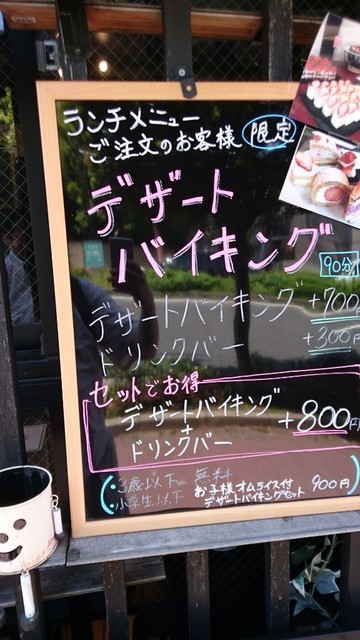 ランチメニュー
ご注文のお客様 限定
デザート
バイキング
90分
デザートバイキング +700円
ドリンクバー +300円
セットでお得
デザートバイキング
+
ドリンクバー
+800円
・3歳以下 無料
・小学生以下 お子様オムライス付
デザートバイキングセット 900円